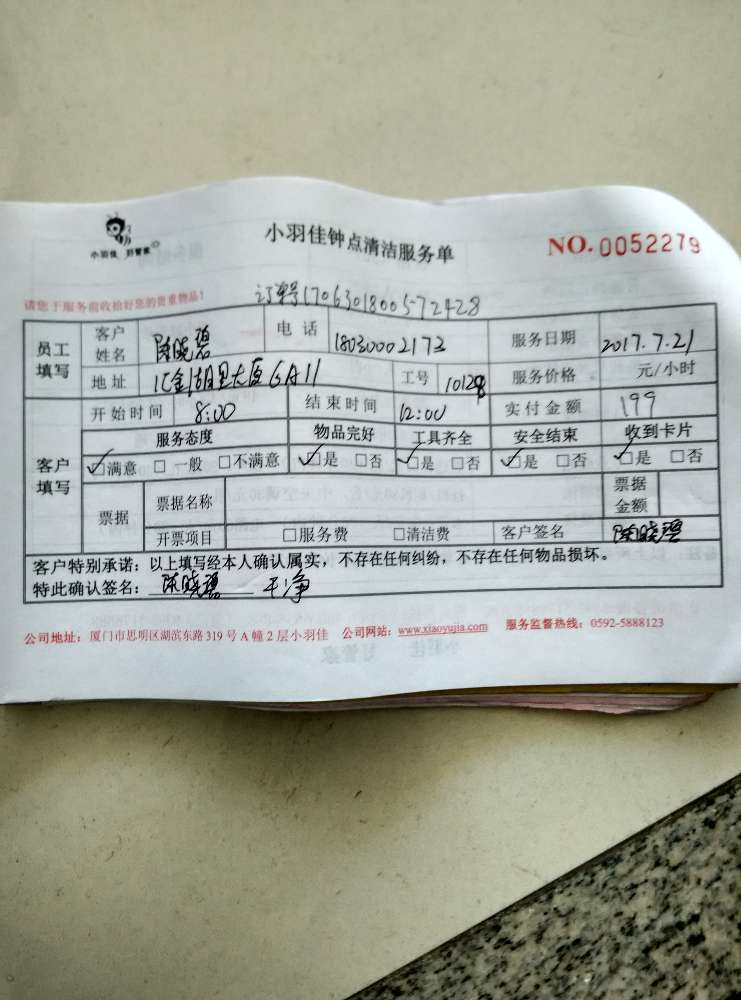 小羽佳 好管家
小羽佳钟点清洁服务单
NO. 0052279
请您于服务前收拾好您的贵重物品!
订单号1706301800572428
员工填写 客户姓名 陈晓碧 电话 18030002173 服务日期 2017.7.21
地址 汇金湖里大厦6A11 工号 10128 服务价格 元/小时
客户填写 开始时间 8:00 结束时间 12:00 实付金额 199
服务态度 物品完好 工具齐全 安全结束 收到卡片
☑满意 □一般 □不满意 ☑是 □否 ☑是 □否 ☑是 □否 ☑是 □否
票据 票据名称 票据金额
开票项目 □服务费 □清洁费 客户签名 陈晓碧
客户特别承诺：以上填写经本人确认属实，不存在任何纠纷，不存在任何物品损坏。
特此确认签名：陈晓碧 干净
公司地址：厦门市思明区湖滨东路319号A幢2层小羽佳 公司网站：www.xiaoyujia.com 服务监督热线：0592-5888123